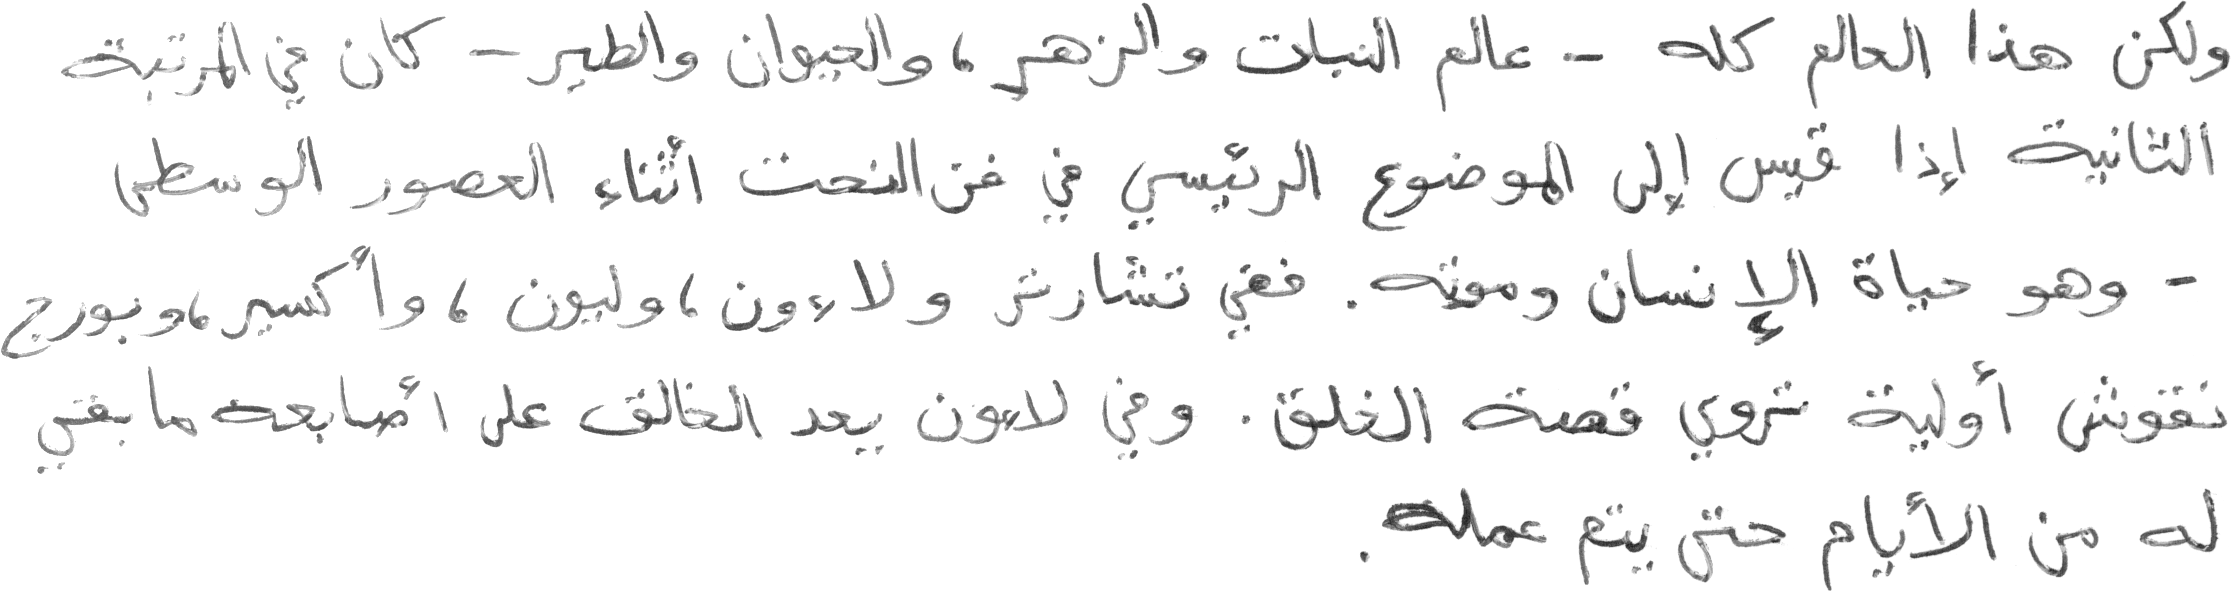 ولكن هذا العالم كله - عالم النبات والزهر، والحيوان والطير - كان في المرتبة
الثانية إذا قيس إلى الموضوع الرئيسي في فن النحت أثناء العصور الوسطى
- وهو حياة الإنسان وموته. ففي تشارتر ولاءون، وليون، وأكسير، وبورج
نقوش أولية تروي قصة الخلق. وفي لاءون يعد الخالق على أصابعه ما بقي
له من الأيام حتى يتم عمله.